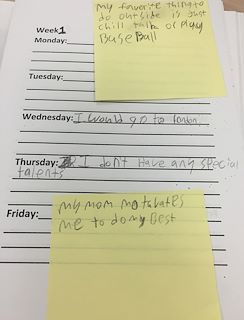 Week1
Monday:
my favorite thing to
do outside is just
chill talk or play
BaseBall
Tuesday:
Wednesday: I would go to london.
Thursday: I don't have any special
talents
Friday:
my mom motavates
me to do my Best